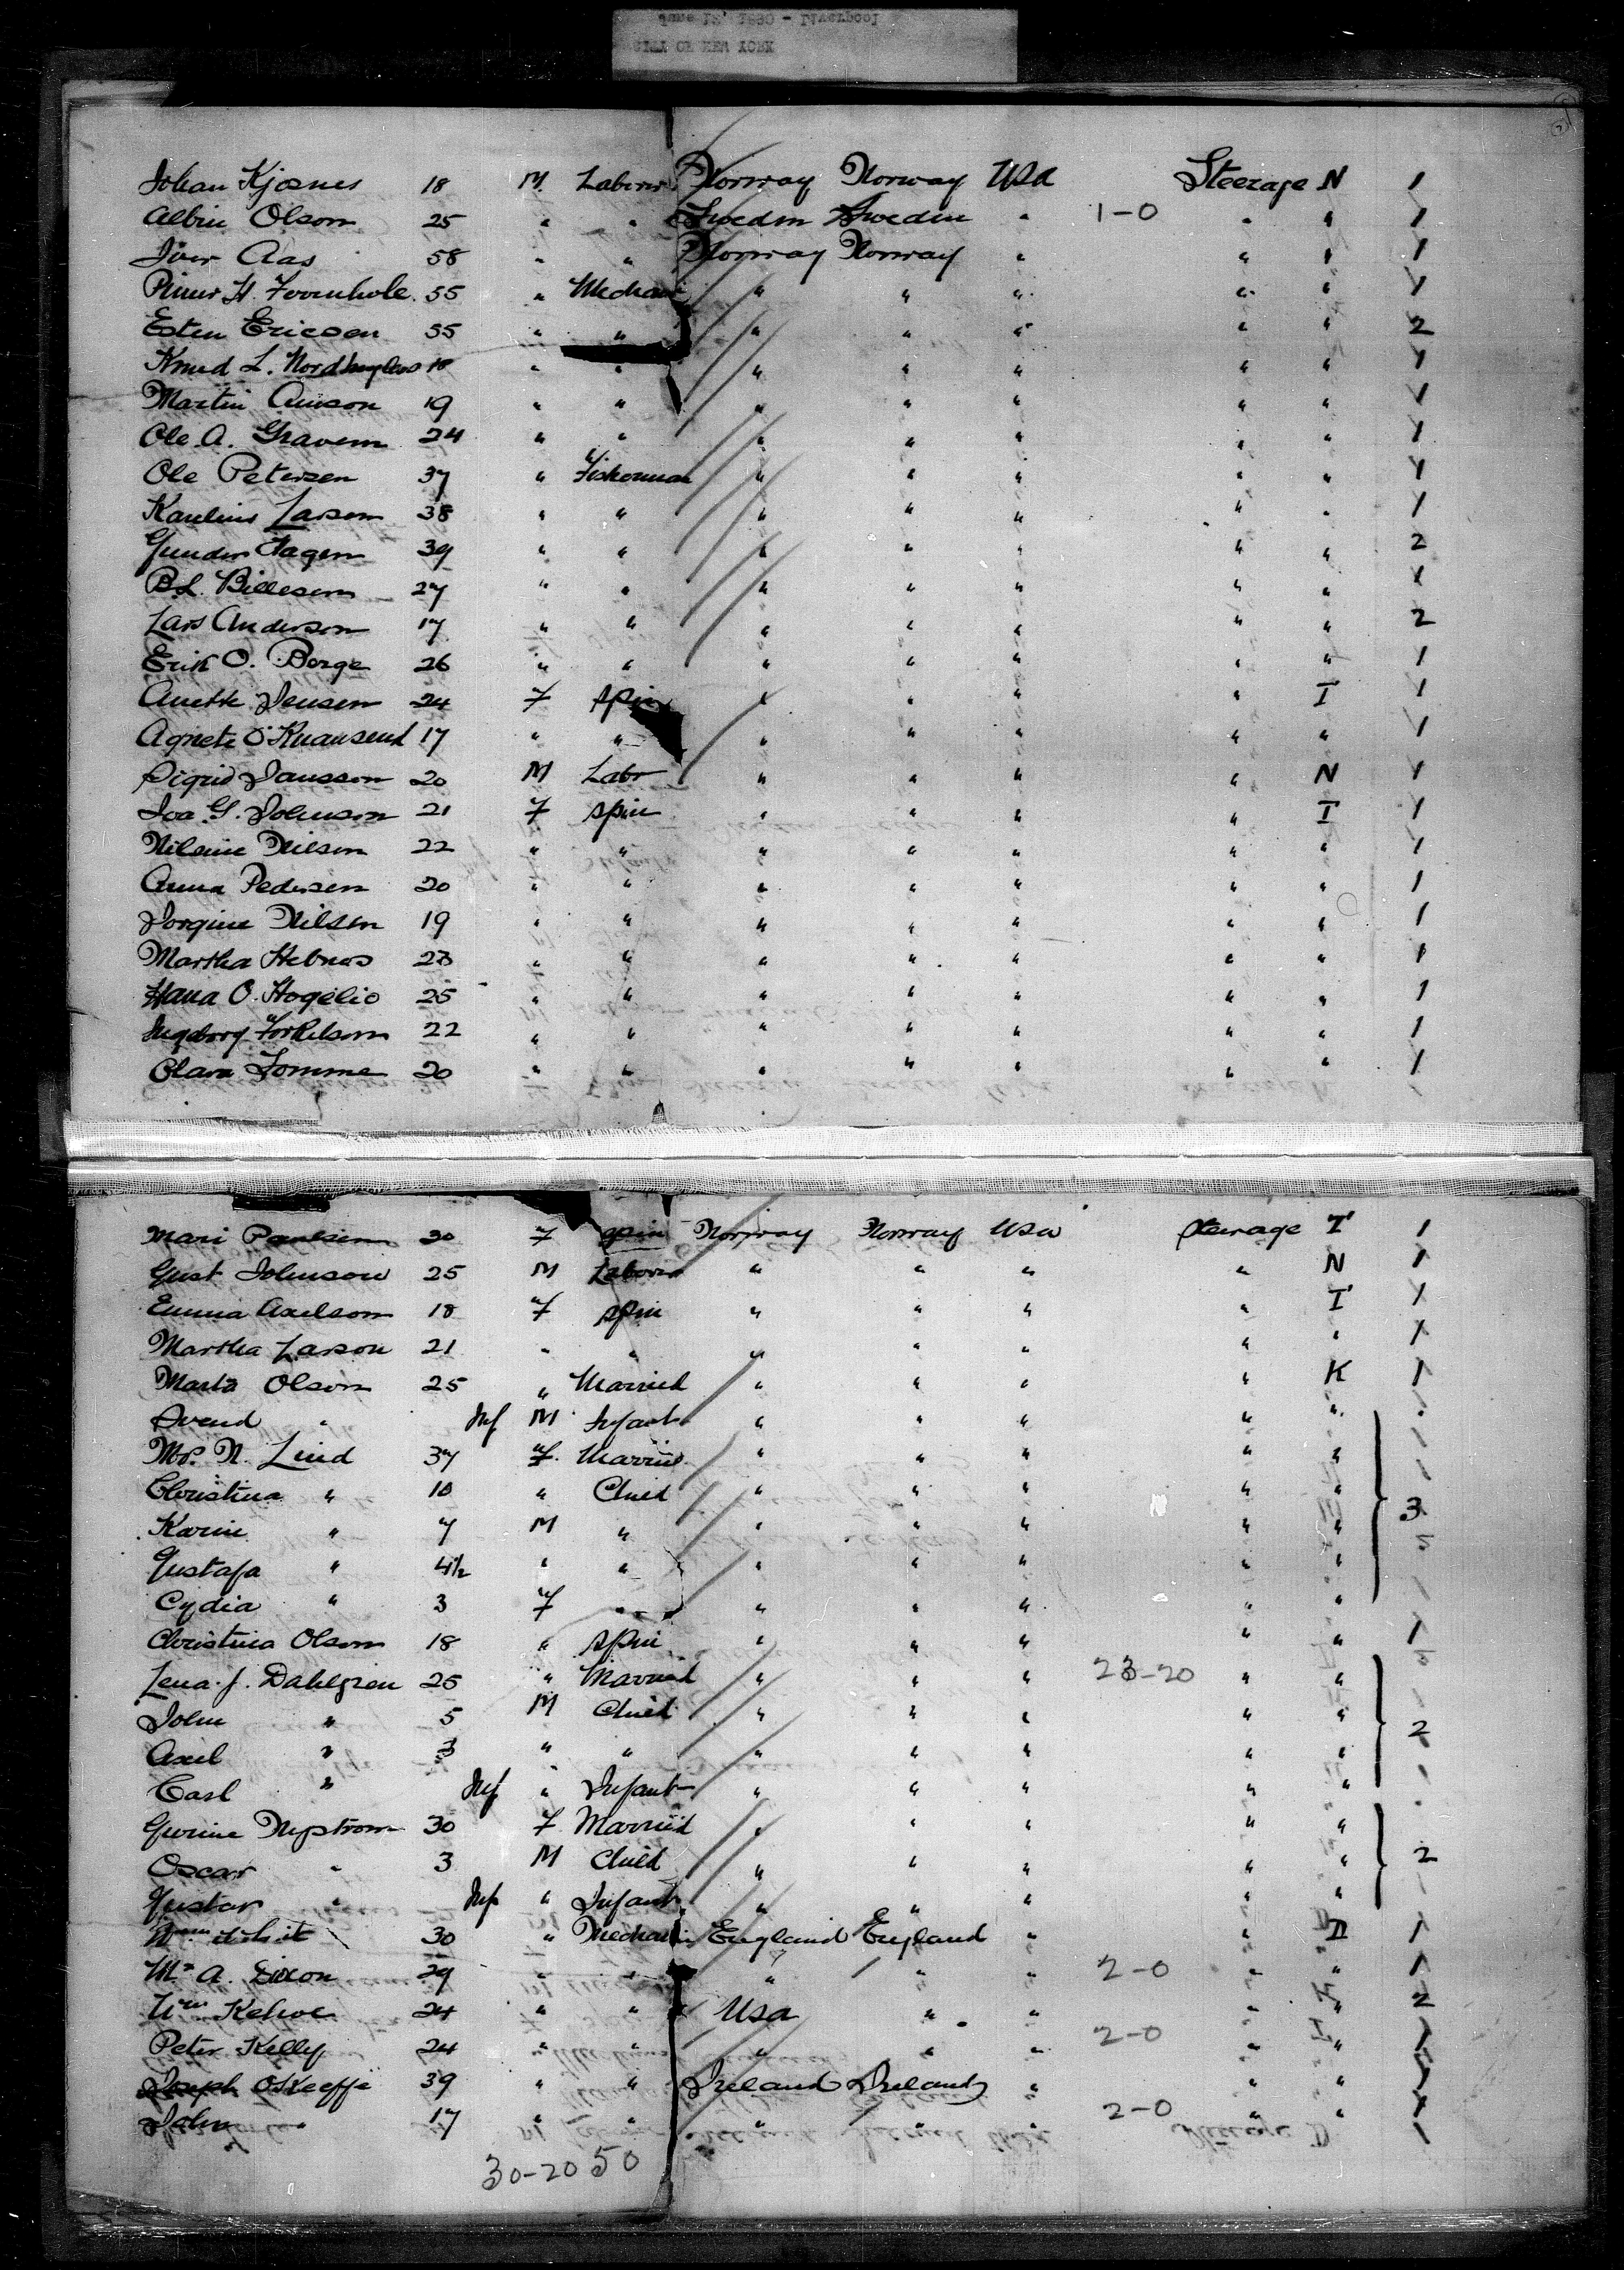 June 12' 1890 - Liverpool
CITY OF NEW YORK
Johan Kjosnes 18 M Laborer Norway Norway USA Steerage N 1
Albin Olson 25 " " Sweden Sweden " 1-0 " " 1
Iver Aas 58 " " Norway Norway " " " 1
H. 55 " Mechani " " " " " 1
Esten Ericson 55 " " " " " " " 2
Knud L. 18 " " " " " " " 1
Martin 19 " " " " " " " 1
Ole A. Gravem 24 " " " " " " " 1
Ole Petersen 37 " Fisherman " " " " " 1
Larsen 38 " " " " " " " 1
Gunder 39 " " " " " " " 2
B.L. Billesem 27 " " " " " " " 1
Lars Anderson 17 " " " " " " " 2
Erik O. Borge 26 " " " " " " " 1
Anette Jensen 24 F spin " " " " I 1
Agnete O 17 " " " " " " " 1
Sigrid Jansson 20 M Labr " " " " N 1
Ida G. Johnson 21 F spin " " " " I 1
Nilsine Nilsen 22 " " " " " " " 1
Anna Pedersen 20 " " " " " " " 1
Jorgine Nilsen 19 " " " " " " " 1
Martha Hebnes 23 " " " " " " " 1
Hana O. Hogelio 25 " " " " " " " 1
Ingeborg Torkilsom 22 " " " " " " " 1
Clara Tomme 20 " " " " " " " 1
Mari Paulsen 30 F spin Norway Norway USA Steerage I 1
Gust Johnson 25 M Laborer " " " " N 1
Emma Axelsom 18 F spin " " " " I 1
Martha Larson 21 " " " " " " " 1
Marta Olson 25 " Married " " " " K 1
Svend " Inf M Infant " " " " "
Mrs. N. Lind 37 F. Married " " " " "
Christina " 10 " Child " " " " "
Karin " 7 M " " " " " " 3
Gustafa " 4½ " " " " " " "
Cydia " 3 F " " " " " "
Christina Olsom 18 " spin " " " " " 1
Lena J. Dahlgren 25 " Married " " " 23-20 " "
John " 5 M Child " " " " "
Axel " 3 " " " " " " " 2
Carl " Inf " Infant " " " " "
Gurine Nystrom 30 F Married " " " " "
Oscar " 3 M Child " " " " " 2
Gustav " Inf " Infant " " " " "
30 " Mechani England England " " D 1
Mr A. Dixon 29 " " " " " 2-0 " " 1
Wm Kehoe 24 " " USA " " " " 2
Peter Kelly 24 " " " " " 2-0 " " 1
Joseph O'Keeffe 39 " " Ireland Ireland " " " 1
John " 17 " " " " " 2-0 " " 1
30-20 50